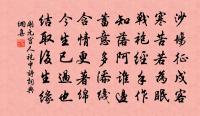 沙場征戍客
寒苦若為眠
戰袍經手作
知落阿誰邊
蓄意多添線
含情更著綿
今生已過也
結取後生緣
元宮人袍中詩詞典
網